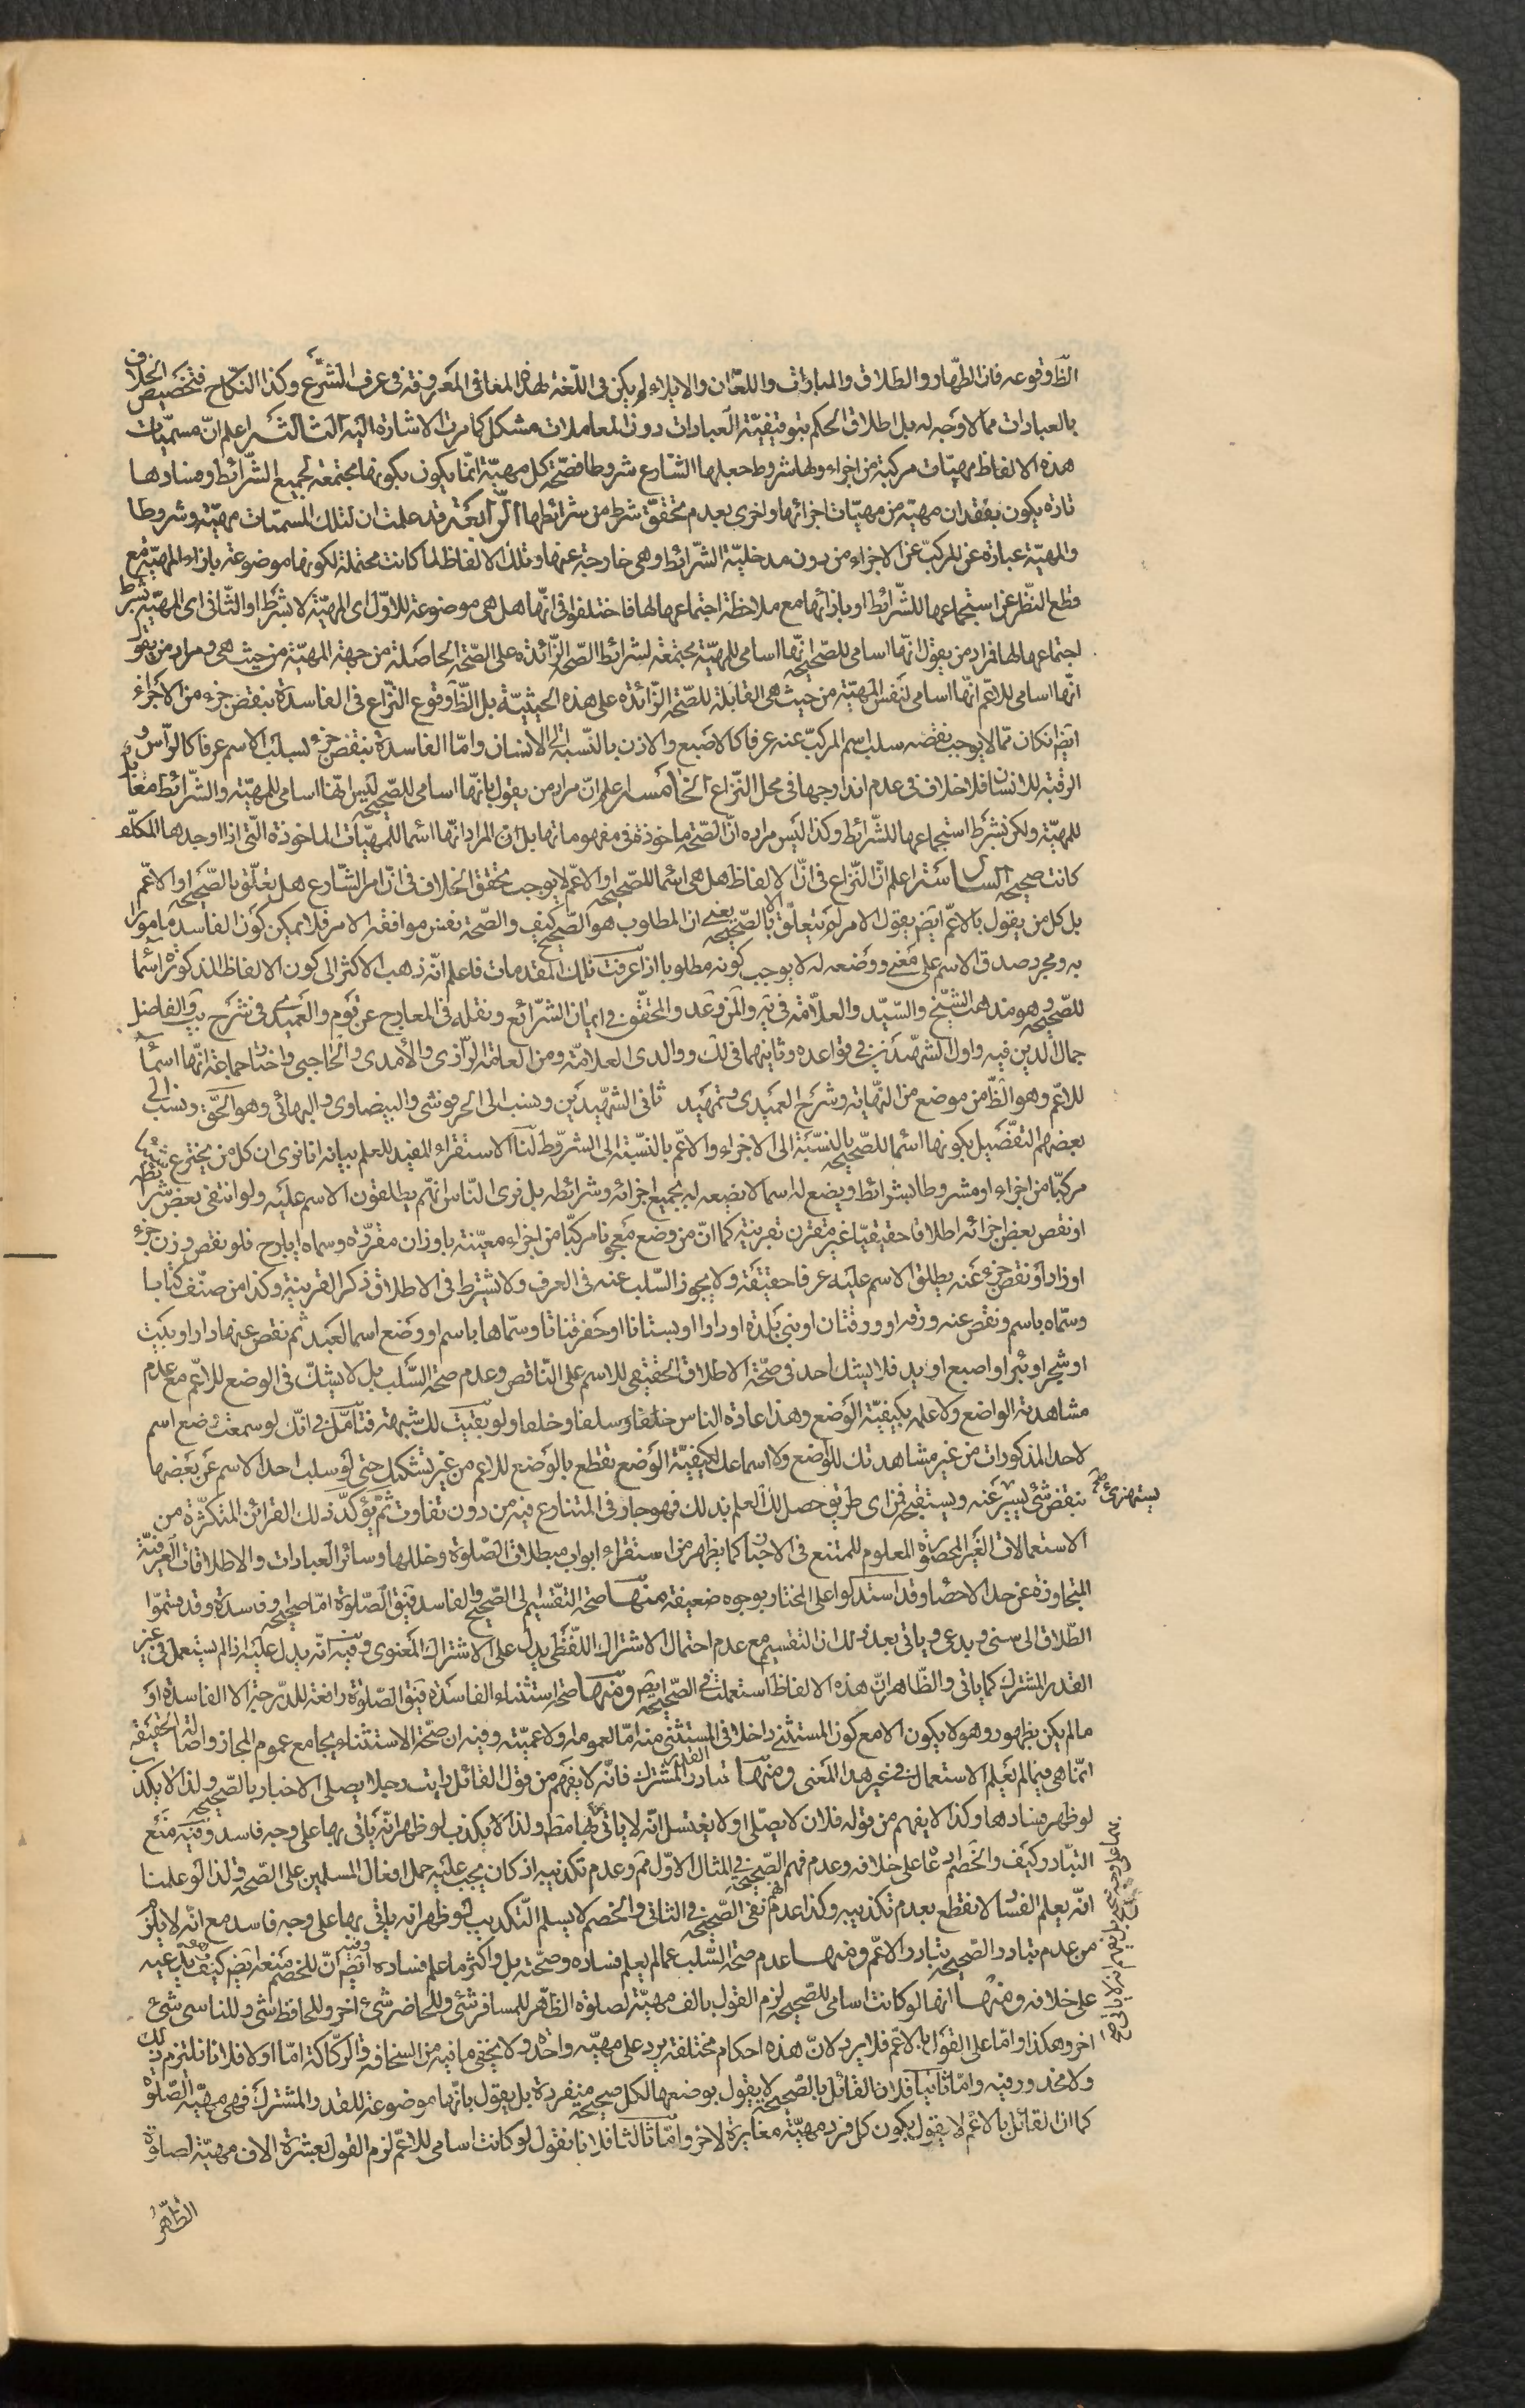 الظّ وقوعه فان الظهار والطلاق والمبارات واللعان والايلاء لم يكن فى اللغة لهذه المعانى المعروفة فى عرف الشرع وكذا النكاح فتخصيص الخلاف
بالعبادات مما لا وجه له بل اطلاق الحكم بتوقيفيّة العبادات دون المعاملات مشكل كما مرت الاشارة اليه الثالثة اعلم انّ مسميّات
هذه الالفاظ مهيّات مركبة من اجزاء ولها شروط جعلها الشارع شروطا فصحّة كل مهيّة انّما يكون بكونها مجتمعة لجميع الشّرائط وفسادها
تارة يكون بفقدان مهيّة من مهيّات اجزائها واخرى بعدم تحقق شرط من شرائطها الرّابعة قد علمت ان لتلك المسميّات مهيّة وشروطا
والمهيّة عبارة عن المركب عن الاجزاء من دون مدخليّة الشّرائط وهى خارجة عنها وتلك الالفاظ لما كانت محتملة لكونها موضوعة بازاء المهيّة مع
قطع النّظر عن استجماعها للشّرائط او بازائها مع ملاحظة اجتماعها لها فاختلفوا فى انّها هل هى موضوعة للاوّل اى المهيّة لا بشرط او الثّانى اى المهيّة بشرط
اجتماعها لها فمراد من يقول انّها اسامى للصّحيحة انّها اسامى للمهيّة مجتمعة لشرائط الصّحة الزّائدة على الصّحة الحاصلة من جهة المهيّة من حيث هى ومراد من يقول
انّها اسامى للاعمّ انّها اسامى لنفس المهيّة من حيث هى القابلة للصّحة الزّائدة على هذه الحيثيّة بل الظّ وقوع النّزاع فى الفاسدة بنقض جزء من الاجزاء
ايضا ان كان ممّا لا يوجب نقصه سلب اسم المركب عنه عرفا كالاصبع والاذن بالنّسبة الى الانسان وامّا الفاسدة بنقص جزء يسلب الاسم عرفا كالرأس و
الرقبة للانسان فلا خلاف فى عدم اندراجها فى محل النّزاع الخامسة اعلم انّ مراد من يقول بانّها اسامى للصّحيحة ليس انّها اسامى للمهيّة والشّرائط معا بل
للمهيّة ولكن بشرط استجماعها للشّرائط وكذا ليس مراده انّ الصّحة ماخوذة فى مفهوماتها بل ان المراد انّها اسما للمهيّات الماخوذة الّتى اذا اوجدها المكلّف
كانت صحيحة السادسة اعلم انّ النّزاع فى انّ الالفاظ هل هى اسما للصّحيحة او الاعمّ لا يوجب تحقق الخلاف فى انّ امر الشّارع هل يتعلّق بالصّحيحة او الاعمّ
بل كل من يقول بالاعمّ ايضا يقول الامر لم يتعلّق الا بالصّحيحة يعنى ان المطلوب هو الصّحيح كيف والصّحة نفس موافقة الامر فلا يمكن كون الفاسد مامورا
به ومجرد صدق الاسم على معنى ووضعه له لا يوجب كونه مطلوبا اذا عرفت تلك المقدمات فاعلم انّه ذهب الاكثر الى كون الالفاظ المذكورة اسما
للصّحيحة وهو مذهب الشيّخ والسّيّد والعلّامة فى يه والمحقّق فى ايمان الشّرائع ونقله فى المعارج عن قوم والعميدى فى شرح يب والفاضل
جمال الدين فيه واول الشّهيدين فى قواعده وثانيهما فى لك ووالدى العلامة ومن العامة الرّازى والأمدى والحاجبى واختار جماعة انّها اسماء
للاعمّ وهو الظّ من موضع من النّهاية وشرح العميدى وتمهيد ثانى الشّهيدين وينسب الى الحرفوشى والبيضاوى والبهائى وهو الحقّ ونسب الى
بعضهم التفصيل بكونها اسما للصّحيحة بالنّسبة الى الاجزاء والاعمّ بالنّسبة الى الشروط لنا الاستقراء المفيد للعلم بيانه انا نرى ان كل من يخترع شيئا
مركّبا من اجزاء او مشروطا بشرائط ويضع له اسما لا يضعه له بجميع اجزائه وشرائطه بل نرى النّاس انّهم يطلقون الاسم عليه ولو انتفى بعض شرائطه
او نقص بعض اجزائه اطلاقا حقيقيّا غير مقترن بقرينة كما انّ من وضع معجونا مركبّا من اجزاء معيّنة باوزان مقرّرة وسماه ايارج فلو نقص وزن جزء
او زاد او نقص جزء عنه يطلق الاسم عليه عرفا حقيقة ولا يجوز السّلب عنه فى العرف ولا يشترط فى الاطلاق ذكر القرينة وكذا من صنّف كتابا
وسمّاه باسم ونقص عنه ورقة او ورقتان او بنى بلدة او دارا او بستانا او حفر قناتا وسمّاها باسم او وضع اسما لعبد ثم نقص عنها دار او بيت
او شجر او بئر او اصبع او يد فلا يشك احد فى صحّة الاطلاق الحقيقى للاسم على النّاقص وعدم صحة السّلب بل لا يشكّ فى الوضع للاعّم مع عدم
مشاهدة الواضع ولا علمه بكيفيّة الوضع وهذا عادة الناس خلفا وسلفا وخلفا ولو بقيت لك شبهة فتامّل فى انّك لو سمعت وضع اسم
لاحد المذكورات من غير مشاهدتك للواضع ولا اسماعك لكيفيّة الوضع تقطع بالوضع للاعم من غير تشكيك حتى لو سلب احد الاسم عن بعضها
بنقص شئ يسير عنه ويستقبحه فمن اى طريق حصل لك العلم بذلك فهو جار فى المتنازع فيه من دون تفاوت ثمّ يؤكّد ذلك القرائن المتكثّرة من
يستهزئ
الاستعمالات الغير المحصورة المعلوم للمتتبع فى الاخبار كما يظهر من استقراء ابواب مبطلات الصّلوة وخللها وسائر العبادات والاطلاقات العرفيّة
المتجاوزة عن حد الاحصاء وقد استدلوا على المختار بوجوه ضعيفة منها صحة التّقسيم الى الصّحيح والفاسد فيق الصّلوة امّا صحيحة وفاسدة وقد قسّموا
الطّلاق الى سنى وبدعى وياتى بعد ذلك ان التقسيم مع عدم احتمال الاشتراك اللّفظى يدل على الاشتراك المعنوى وفيه انّه يدل عليه اذا لم يستعمل فى غير
القدر المشترك كما ياتى والظّاهر انّ هذه الالفاظ استعملت فى الصّحيحة ايضا ومنها صحة استثناء الفاسدة فيق الصّلوة رافعة للدّرجة الا الفاسدة او
مالم يكن بطهور وهو لا يكون الا مع كون المستثنى داخلا فى المستثنى منه امّا لعمومه او لاعميّته وفيه ان صحّة الاستثناء يجامع عموم المجاز واصالة الحقيقة
انمّا هى فيما لم يعلم الاستعمال فى غير هذا المعنى ومنها تبادر القدر المشترك فانّه لا يفهم من قول القائل رايت رجلا يصلى الاخبار بالصّحيحة ولذا لا يكذب
لو ظهر فسادها وكذا لا يفهم من قوله فلان لا يصّلى او لا يغتسل انّه لا ياتى بها مط ولذا لا يكذب لو ظهر انّه ياتى بها على وجه فاسد وفيه منع
التبّادر كيف والخصم ادعا على خلافه وعدم فهم الصّحيح فى المثال الاوّل مم وعدم تكذيبه اذ كان يجب عليه حمل افعال المسلمين على الصّحة ولذا لو علمنا
انّه يعلم الفساد لا نقطع بعدم تكذيبه وكذا عدم فهم نفى الصّحيح فى الثانى والخصم لا يسلم التّكذيب لو ظهر انه ياتى بها على وجه فاسد مع انّه لا يلزم
من عدم تبادر الصّحيحة تبادر الاعّم ومنها عدم صحة السّلب عما لم يعلم فساده وصحّته بل واكثر ما علم فساده وفيه ايضا انّ للخصم منعه ايضا كيف وهو يدّعيه
على خلافه ومنها انها لو كانت اسامى للصّحيحة لزم القول بالف مهيّة لصلوة الظّهر للمسافر شئ وللحاضر شئ اخر وللحافظ شئ وللناسى شئ
اخر وهكذا وامّا على القول بالاعّم فلا يرد لانّ هذه احكام مختلفة يرد على مهيّة واحدة ولا يخفى ما فيه من السّخافة والرّكاكة امّا اولا فلانا نلتزم ذلك
ولا محذور فيه وامّا ثانيا فلان القائل بالصّحيحة لا يقول بوضعها لكل صحيحة منفردة بل يقول بانّها موضوعة للقدر المشترك فهى مهيّة الصّلوة
كما ان القائل بالاعّم لا يقول بكون كل فرد مهيّة مغايرة لاخر وامّا ثالثا فلانا نقول لو كانت اسامى للاعّم لزم القول بعشرة الاف مهيّة لصلوة
الظّهر